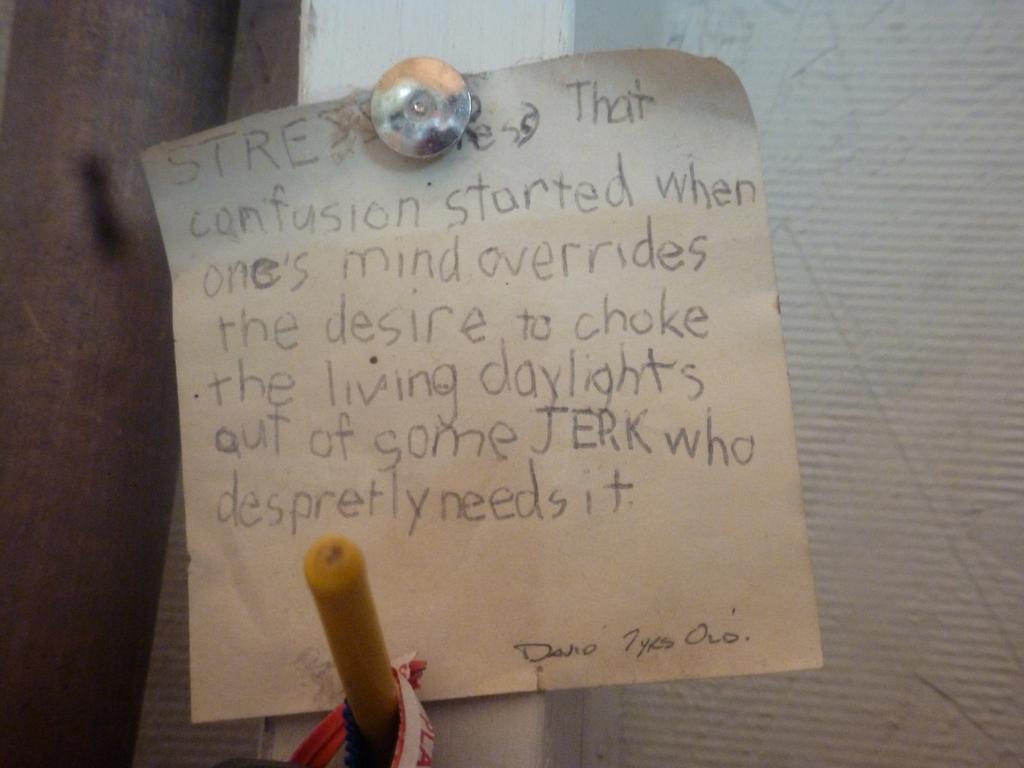 STRESS That
confusion started when
one's mind overrides
the desire to choke
the living daylights
out of some JERK who
despretly needs it.
David 7yrs Old.
PLA